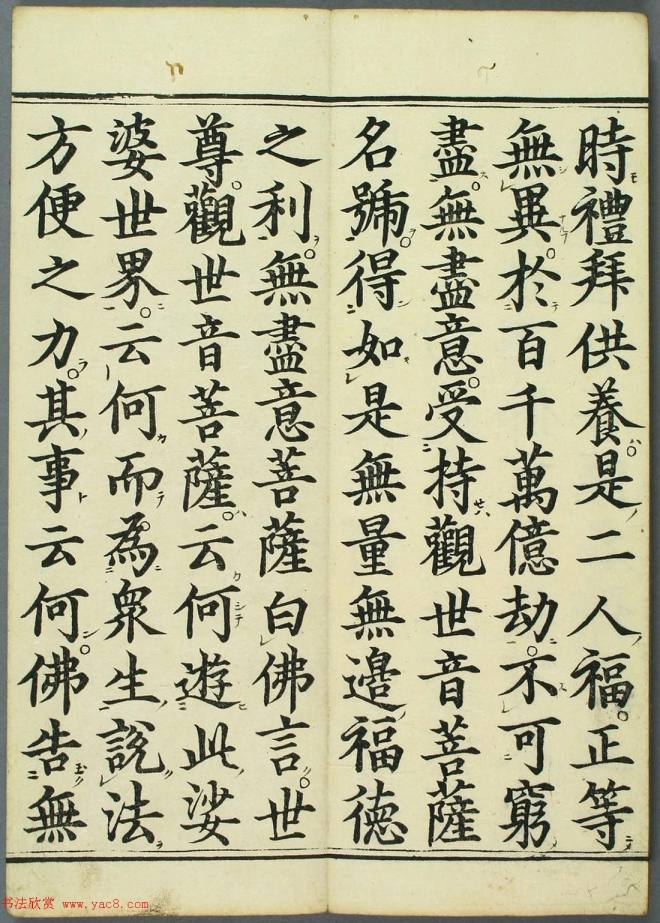 時禮拜供養是二人福正等
無異於百千萬億劫不可窮
盡無盡意受持觀世音菩薩
名號得如是無量無邊福德
之利無盡意菩薩白佛言世
尊觀世音菩薩云何遊此娑
婆世界云何而為衆生說法
方便之力其事云何佛告無
书法欣赏 www.yac8.com